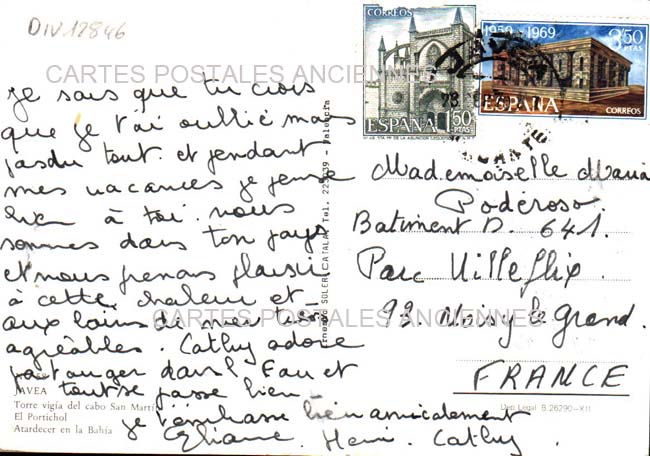 DIV12846
CARTES POSTALES ANCIENNES
Je sais que tu crois
que je t'ai oublié mais
pas du tout. et pendant
mes vacances je pense
bien à toi. nous
sommes dans ton pays
et nous prenons plaisir
à cette chaleur et
aux bains de mer très
agréables. Cathy adore
patauger dans l'eau et
tout se passe bien
je t'embrasse bien amicalement
Eliane. Henri. Cathy.
JAVEA
Torre vigía del cabo San Martín
El Portichol
Atardecer en la Bahía
SOLER CATALA Tel. Valencia
CORREOS
ESPAÑA 1'50 PTAS
1959-1969
3'50 PTAS
ESPAÑA
CORREOS
JAVEA
ALICANTE
Mademoiselle Maria
Poderoso
Batiment D. 641.
Parc Villeflix.
93 Noisy le grand.
FRANCE
Dep. Legal B. 26290-XII
CARTES POSTALES ANCIENNES